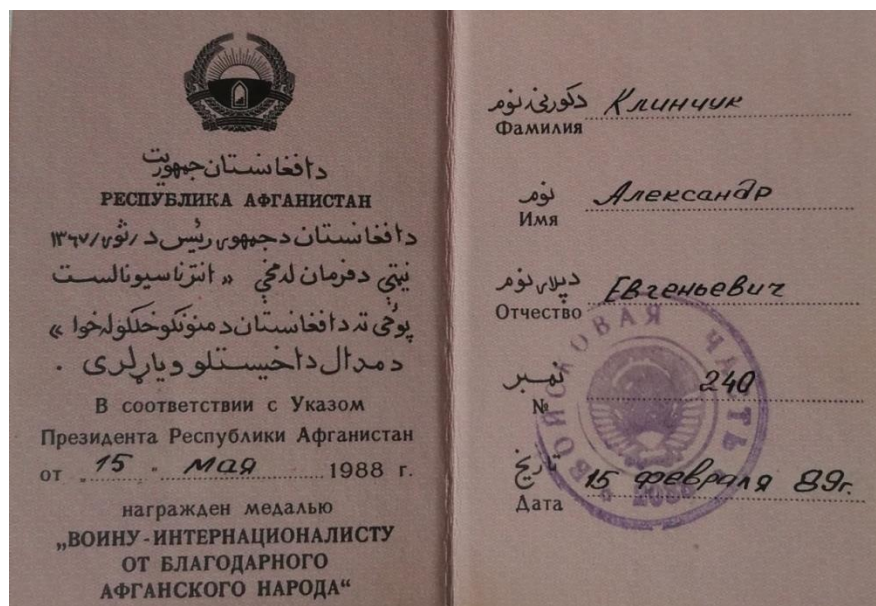 د افغانستان جمهوریت
РЕСПУБЛИКА АФГАНИСТАН
د افغانستان د جمهور رئیس د /ثور/ ۱۳۶۷
نیټې د فرمان له مخې « انترناسیونالست
پوځي ته د افغانستان د منونکو خلکو له خوا »
د مدال د اخیستلو ویاړ لري .
В соответствии с Указом
Президента Республики Афганистан
от „ 15 " мая 1988 г.
награжден медалью
„ВОИНУ-ИНТЕРНАЦИОНАЛИСТУ
ОТ БЛАГОДАРНОГО
АФГАНСКОГО НАРОДА“
د کورنۍ نوم Клинчук
Фамилия
نوم Александр
Имя
د پلار نوم Евгеньевич
Отчество
نمبر 240
№
تاریخ 15 февраля 89г.
Дата
ВОЙСКОВАЯ ЧАСТЬ